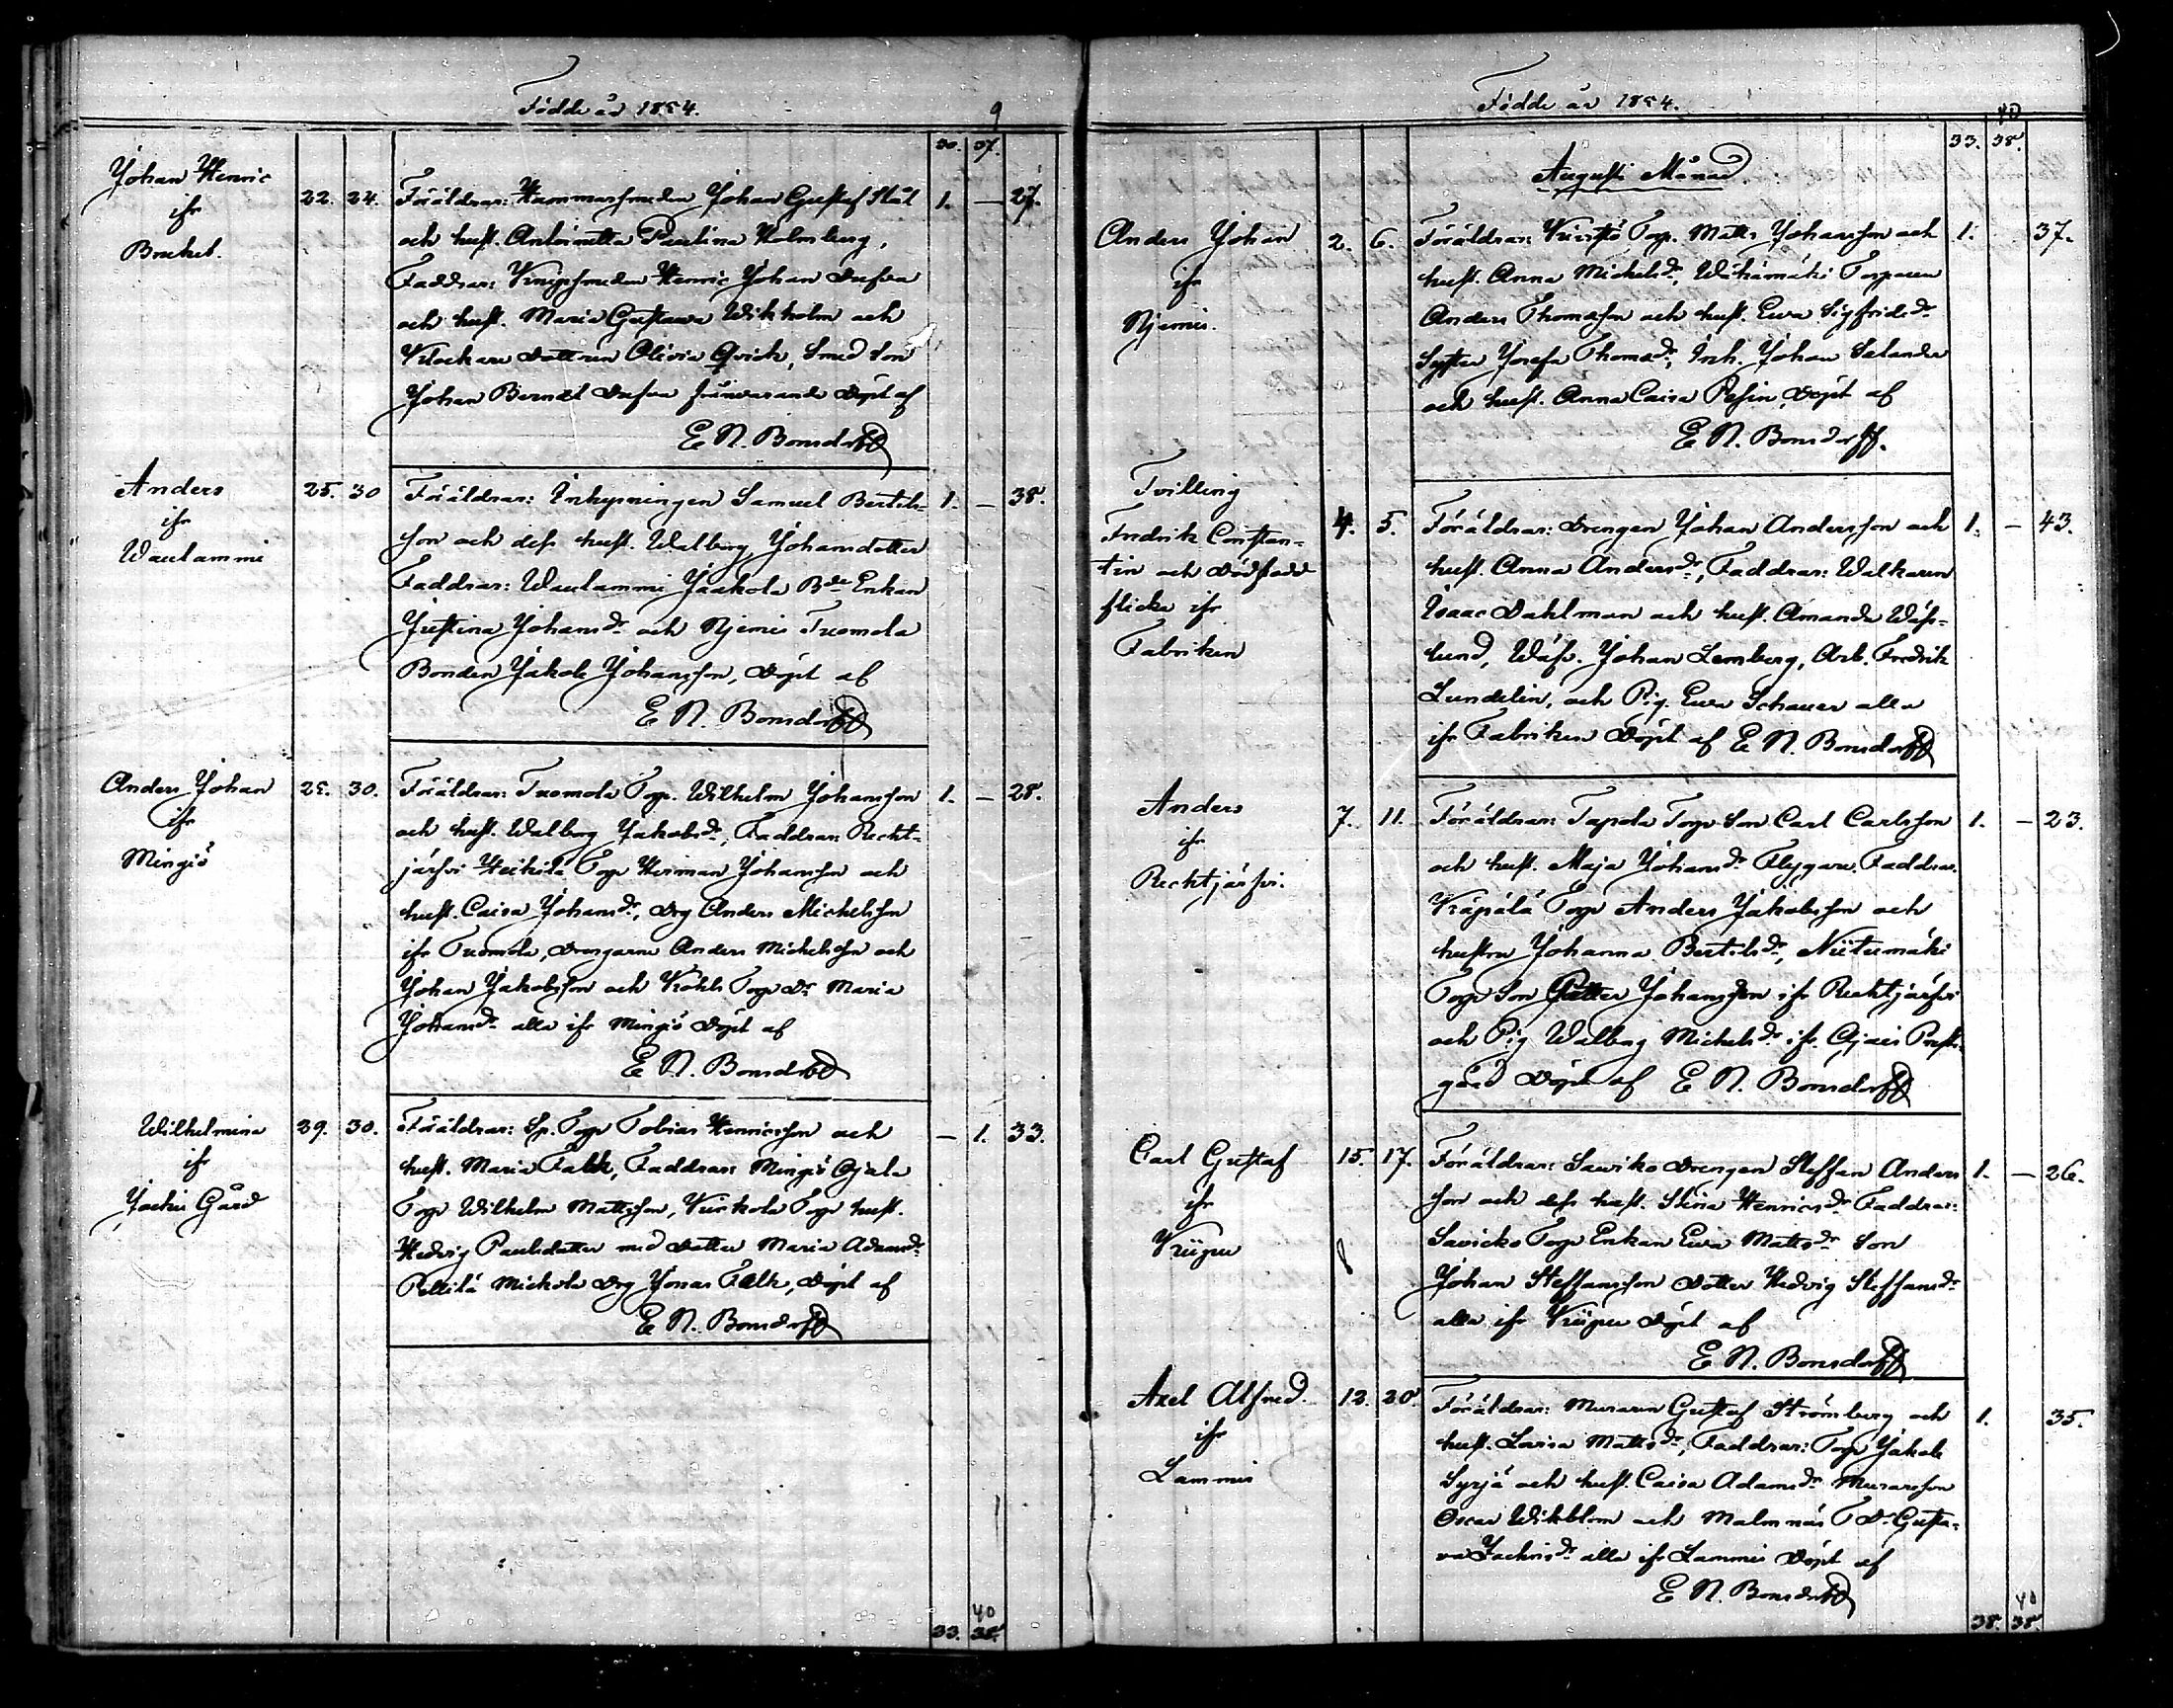 Födde år 1854.
9
30. 37.
Johan Henric
ifr
Bruket.
22. 24.
Föräldrar: Hammarsmeden Johan Gustaf Stål
och hust. Antoinetta Paulina Holmberg,
Faddrar: Knipsmeden Henric Johan Dufva
och hust. Maria Gustava Wikholm och
Klockare Dottren Olivia Qvick, Smed Son
Johan Berndt Dufva Döpt af
E N. Bonsdorff
1. — 27.
Anders
ifr
Waulammi
25. 30
Föräldrar: Inhysningen Samuel Bertils-
son och dess hust. Walborg Johansdotter
Faddrar: Waulammi Jaakola Bde Enkan
Justina Johansdr och Njemis Tuomola
Bonden Jakob Johansson, Döpt af
E N. Bonsdorff
1. — 38.
Anders Johan
ifr
Mingiö
25. 30.
Föräldrar: Tuomola Torp. Wilhelm Johansson
och hust. Walborg Jakobsdr, Faddrar: Recht-
järfvi Heikilä Torp Herman Johansson och
hust. Caisa Johansdr, Drg Anders Michelsson
ifr Tuomola, Drengarne Anders Michelsson och
Johan Jakobsson och Torp Dr Maria
Johansdr alla ifr Mingiö Döpt af
E N. Bonsdorff
1. — 28.
Wilhelmina
ifr
Jockis Gård
29. 30.
Föräldrar: Sp. Torp Tobias Henricsson och
hust. Maria Falk, Faddrar: Mingiö Ojala
Torp Wilhelm Mattsson, Kurkola Torp hust.
Hedvig Paulsdotter med Dotter Maria Adamsdr
Pellilä Mickola Drg Jonas Falk, Döpt af
E N. Bonsdorff
— 1. 33.
40
33. 38.
Födde år 1854.
40
33. 38.
Augusti Månad
Anders Johan
ifr
Njemis.
2. 6.
Föräldrar: Torp. Matts Johansson och
hust. Anna Michelsdr, Torparen
Anders Thomasson och hust. Eva Sigfridsdr
Syster Josefa Thomasdr, Inh. Johan Salander
och hust. Anna Caisa Döpt af
E N. Bonsdorff.
1. 37.
Tvilling
Fredrik Constan-
tin och Dödfödd
flicka ifr
Fabriken
4. 5.
Föräldrar: Drengen Johan Andersson och
hust. Anna Andersdr, Faddrar: Walkaren
Isaac Dahlman och hust. Amanda Wäs-
lund, Wäfv. Johan Lemberg, Arb. Fredrik
Lundelin, och Pig. Eva Schauer alla
ifr Fabriken Döpt af E N. Bonsdorff
1. — 43.
Anders
ifr
Rechtjärfvi.
7. 11.
Föräldrar: Tapola Torp Son Carl Carlsson
och hust. Maja Johansdr Flygare. Faddrar.
Käpälä Torp Anders Jakobsson och
hustru Johanna Bertilsdr, Niitumäki
Torp Son Petter Johansson ifr Rechtjärfvi
och Pig Walborg Michelsdr ifr. Ojais Prest-
gård Döpt af E N. Bonsdorff
1. — 23.
Carl Gustaf
ifr
Kiipu
15. 17.
Föräldrar: Saviko Drengen Steffan Anders
son och dess hust. Stina Henricsdr Faddrar:
Savicko Torp Enkan Eva Mattsdr Son
Johan Steffansson Dotter Hedvig Steffansdr
alla ifr Kiipu Döpt af
E N. Bonsdorff
1. — 26.
Axel Alfred
ifr
Lammis
12. 20.
Föräldrar: Muraren Gustaf Strömberg och
hust. Lovisa Mattsdr, Faddrar: Torp Jakob
Syrjä och hust. Caisa Adamsdr Murarson
Oscar Wikblom och Malmnäs T Dr Gusta-
va Zachrisdr alla ifr Lammis Döpt af
E N. Bonsdorff
1. 35.
40
38. 38.